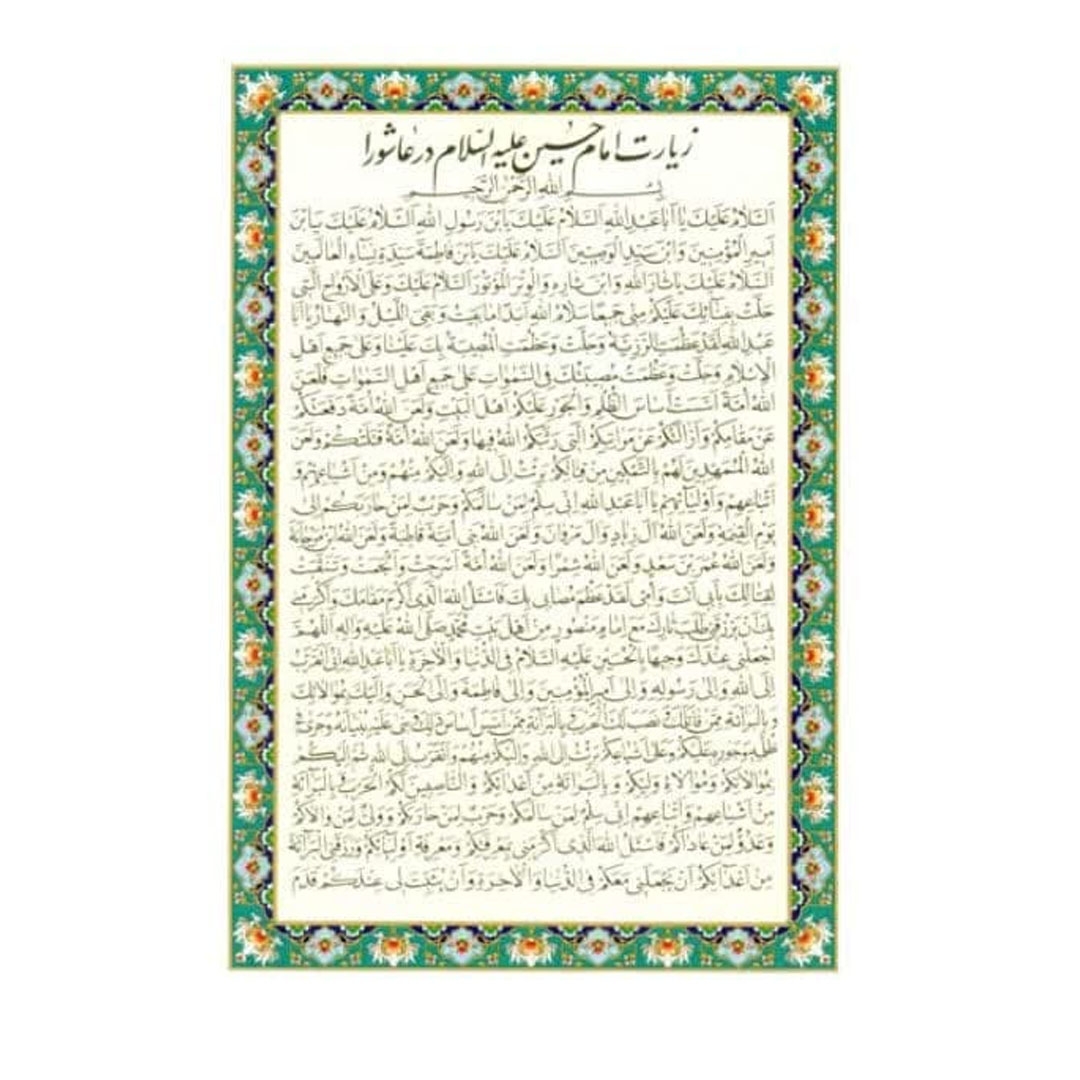 زیارت امام حسین علیه السّلام در عاشورا
بِسْمِ اللهِ الرَّحْمٰنِ الرَّحیمِ
اَلسَّلامُ عَلَیْکَ یا اَبا عَبْدِاللهِ اَلسَّلامُ عَلَیْکَ یَابْنَ رَسُولِ اللهِ اَلسَّلامُ عَلَیْکَ یَا بْنَ
اَمیرِالْمُؤْمِنینَ وَابْنَ سَیِّدِ الْوَصِیّینَ اَلسَّلامُ عَلَیْکَ یَابْنَ فاطِمَةَ سَیِّدَةِ نِساءِ الْعالَمینَ
اَلسَّلامُ عَلَیْکَ یا ثارَ اللهِ وَابْنَ ثارِهِ وَالْوِتْرَ الْمَوْتُورَ اَلسَّلامُ عَلَیْکَ وَعَلَی الْاَرْواحِ الَّتی
حَلَّتْ بِفِنآئِکَ عَلَیْکُمْ مِنّی جَمیعًا سَلامُ اللهِ اَبَدًا ما بَقیتُ وَ بَقِیَ اللَّیْلُ وَ النَّهارُ یا اَبا
عَبْدِ اللهِ لَقَدْ عَظُمَتِ الرَّزِیَّةُ وَجَلَّتْ وَعَظُمَتِ الْمُصیبَةُ بِکَ عَلَیْنا وَعَلی جَمیعِ اَهْلِ
الْاِسْلامِ وَجَلَّتْ وَعَظُمَتْ مُصیبَتُکَ فِی السَّمٰواتِ عَلی جَمیعِ اَهْلِ السَّمٰواتِ فَلَعَنَ
اللهُ اُمَّةً اَسَّسَتْ اَساسَ الظُّلْمِ وَالْجَوْرِ عَلَیْکُمْ اَهْلَ الْبَیْتِ وَلَعَنَ اللهُ اُمَّةً دَفَعَتْکُمْ
عَنْ مَقامِکُمْ وَاَزالَتْکُمْ عَنْ مَراتِبِکُمُ الَّتی رَتَّبَکُمُ اللهُ فیها وَلَعَنَ اللهُ اُمَّةً قَتَلَتْکُمْ وَلَعَنَ
اللهُ الْمُمَهِّدینَ لَهُمْ بِالتَّمْکینِ مِنْ قِتالِکُمْ بَرِئْتُ اِلَی اللهِ وَ اِلَیْکُمْ مِنْهُمْ وَ مِنْ اَشْیاعِهِمْ وَ
اَتْباعِهِمْ وَ اَوْلِیآئِهِمْ یا اَبا عَبْدِ اللهِ اِنّی سِلْمٌ لِمَنْ سالَمَکُمْ وَ حَرْبٌ لِمَنْ حارَبَکُمْ اِلی
یَوْمِ الْقِیٰمَةِ وَلَعَنَ اللهُ آلَ زِیادٍ وَ آلَ مَرْوانَ وَلَعَنَ اللهُ بَنی اُمَیَّةَ قاطِبَةً وَلَعَنَ اللهُ ابْنَ مَرْجانَةَ
وَلَعَنَ اللهُ عُمَرَ بْنَ سَعْدٍ وَلَعَنَ اللهُ شِمْرًا وَلَعَنَ اللهُ اُمَّةً اَسْرَجَتْ وَاَلْجَمَتْ وَتَنَقَّبَتْ
لِقِتالِکَ بِاَبی اَنْتَ وَ اُمّی لَقَدْ عَظُمَ مُصابی بِکَ فَاَسْئَلُ اللهَ الَّذی اَکْرَمَ مَقامَکَ وَاَکْرَمَنی
بِکَ اَنْ یَرْزُقَنی طَلَبَ ثارِکَ مَعَ اِمامٍ مَنْصُورٍ مِنْ اَهْلِ بَیْتِ مُحَمَّدٍ صَلَّی اللهُ عَلَیْهِ وَآلِهِ اَللّهُمَّ
اجْعَلْنی عِنْدَکَ وَجیهًا بِالْحُسَیْنِ عَلَیْهِ السَّلامُ فِی الدُّنْیا وَ الْآخِرَةِ یا اَبا عَبْدِ اللهِ اِنّی اَتَقَرَّبُ
اِلَی اللهِ وَ اِلی رَسُولِهِ وَ اِلی اَمیرِالْمُؤْمِنینَ وَ اِلی فاطِمَةَ وَ اِلَی الْحَسَنِ وَ اِلَیْکَ بِمُوالاتِکَ
وَ بِالْبَرائَةِ مِمَّنْ قاتَلَکَ وَ نَصَبَ لَکَ الْحَرْبَ وَ بِالْبَرائَةِ مِمَّنْ اَسَّسَ اَساسَ ذٰلِکَ وَ بَنی عَلَیْهِ بُنْیانَهُ وَ جَری فی
ظُلْمِهِ وَ جَوْرِهِ عَلَیْکُمْ وَ عَلی اَشْیاعِکُمْ بَرِئْتُ اِلَی اللهِ وَ اِلَیْکُمْ مِنْهُمْ وَ اَتَقَرَّبُ اِلَی اللهِ ثُمَّ اِلَیْکُمْ
بِمُوالاتِکُمْ وَ مُوالاةِ وَلِیِّکُمْ وَ بِالْبَرائَةِ مِنْ اَعْدآئِکُمْ وَ النّاصِبینَ لَکُمُ الْحَرْبَ وَ بِالْبَرائَةِ
مِنْ اَشْیاعِهِمْ وَ اَتْباعِهِمْ اِنّی سِلْمٌ لِمَنْ سالَمَکُمْ وَ حَرْبٌ لِمَنْ حارَبَکُمْ وَ وَلِیٌّ لِمَنْ والاکُمْ
وَ عَدُوٌّ لِمَنْ عاداکُمْ فَاَسْئَلُ اللهَ الَّذی اَکْرَمَنی بِمَعْرِفَتِکُمْ وَ مَعْرِفَةِ اَوْلِیآئِکُمْ وَ رَزَقَنِی الْبَرائَةَ
مِنْ اَعْدآئِکُمْ اَنْ یَجْعَلَنی مَعَکُمْ فِی الدُّنْیا وَ الْآخِرَةِ وَ اَنْ یُثَبِّتَ لی عِنْدَکُمْ قَدَمَ